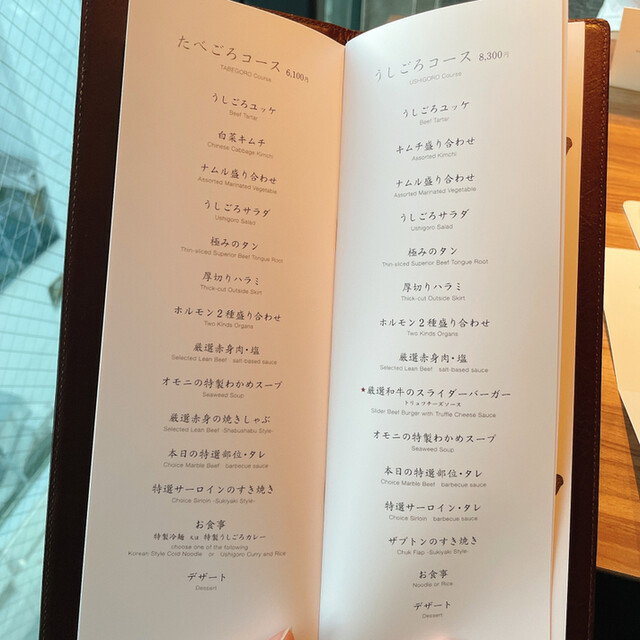 たべごろコース 6,100円
TABEGORO Course
うしごろユッケ
Beef Tartar
白菜キムチ
Chinese Cabbage Kimchi
ナムル盛り合わせ
Assorted Marinated Vegetable
うしごろサラダ
Ushigoro Salad
極みのタン
Thin-sliced Superior Beef Tongue Root
厚切りハラミ
Thick-cut Outside Skirt
ホルモン2種盛り合わせ
Two Kinds Organs
厳選赤身肉・塩
Selected Lean Beef salt-based sauce
オモニの特製わかめスープ
Seaweed Soup
厳選赤身の焼きしゃぶ
Selected Lean Beef -Shabushabu Style-
本日の特選部位・タレ
Choice Marble Beef barbecue sauce
特選サーロインのすき焼き
Choice Sirloin -Sukiyaki Style-
お食事
特製冷麺 又は 特製うしごろカレー
choose one of the following
Korean Style Cold Noodle or Ushigoro Curry and Rice
デザート
Dessert
うしごろコース 8,300円
USHIGORO Course
うしごろユッケ
Beef Tartar
キムチ盛り合わせ
Assorted Kimchi
ナムル盛り合わせ
Assorted Marinated Vegetable
うしごろサラダ
Ushigoro Salad
極みのタン
Thin-sliced Superior Beef Tongue Root
厚切りハラミ
Thick-cut Outside Skirt
ホルモン2種盛り合わせ
Two Kinds Organs
厳選赤身肉・塩
Selected Lean Beef salt-based sauce
★厳選和牛のスライダーバーガー
トリュフチーズソース
Slider Beef Burger with Truffle Cheese Sauce
オモニの特製わかめスープ
Seaweed Soup
本日の特選部位・タレ
Choice Marble Beef barbecue sauce
特選サーロイン・タレ
Choice Sirloin barbecue sauce
ザブトンのすき焼き
Chuk Flap -Sukiyaki Style-
お食事
Noodle or Rice
デザート
Dessert